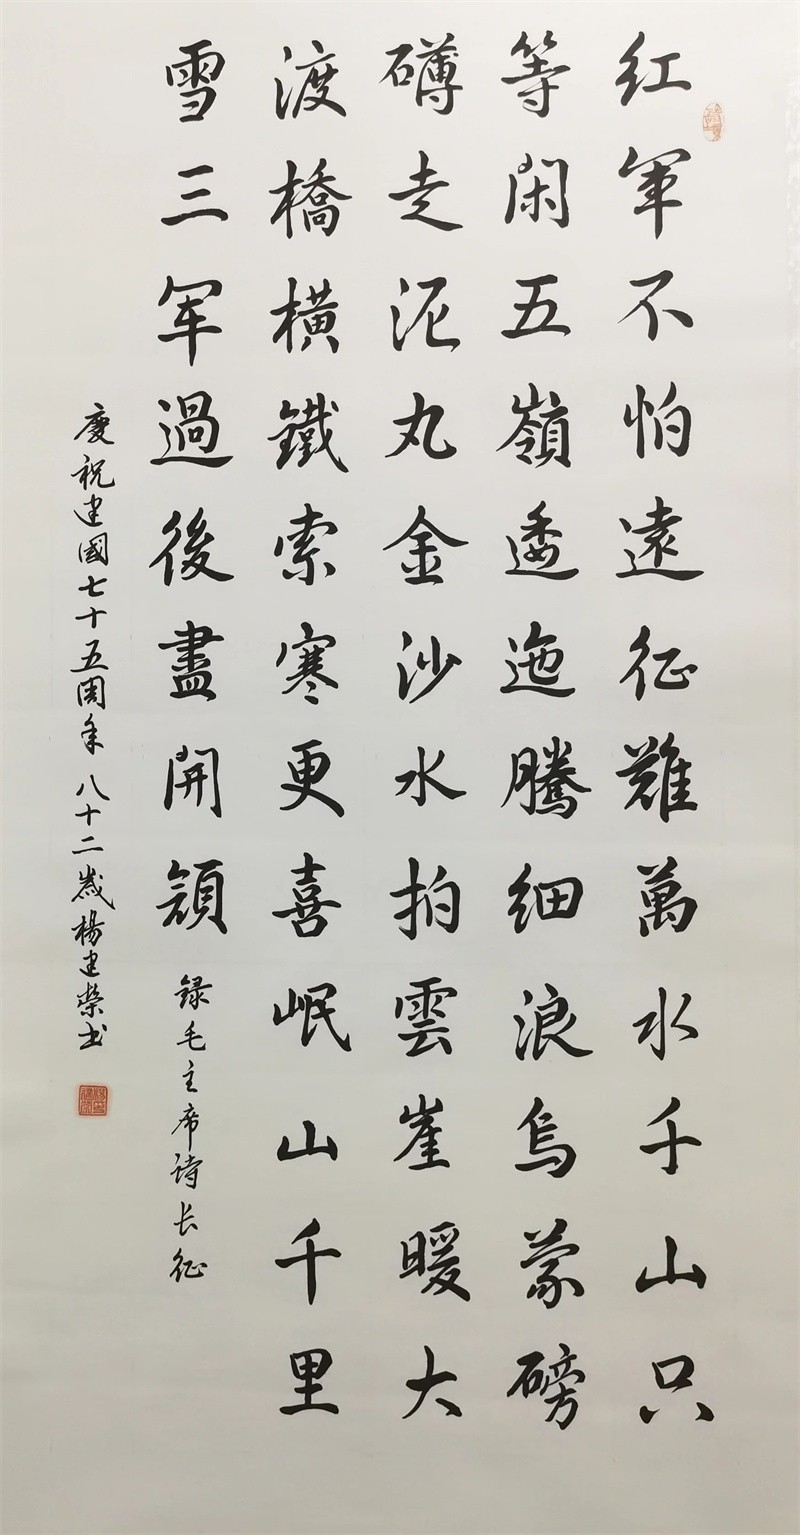 红軍不怕遠征難萬水千山只
等閑五嶺逶迤騰细浪烏蒙磅
礴走泥丸金沙水拍雲崖暖大
渡橋橫鐵索寒更喜岷山千里
雪三军過後盡開顔
録毛主席诗长征
慶祝建國七十五周年 八十二歲楊建榮书